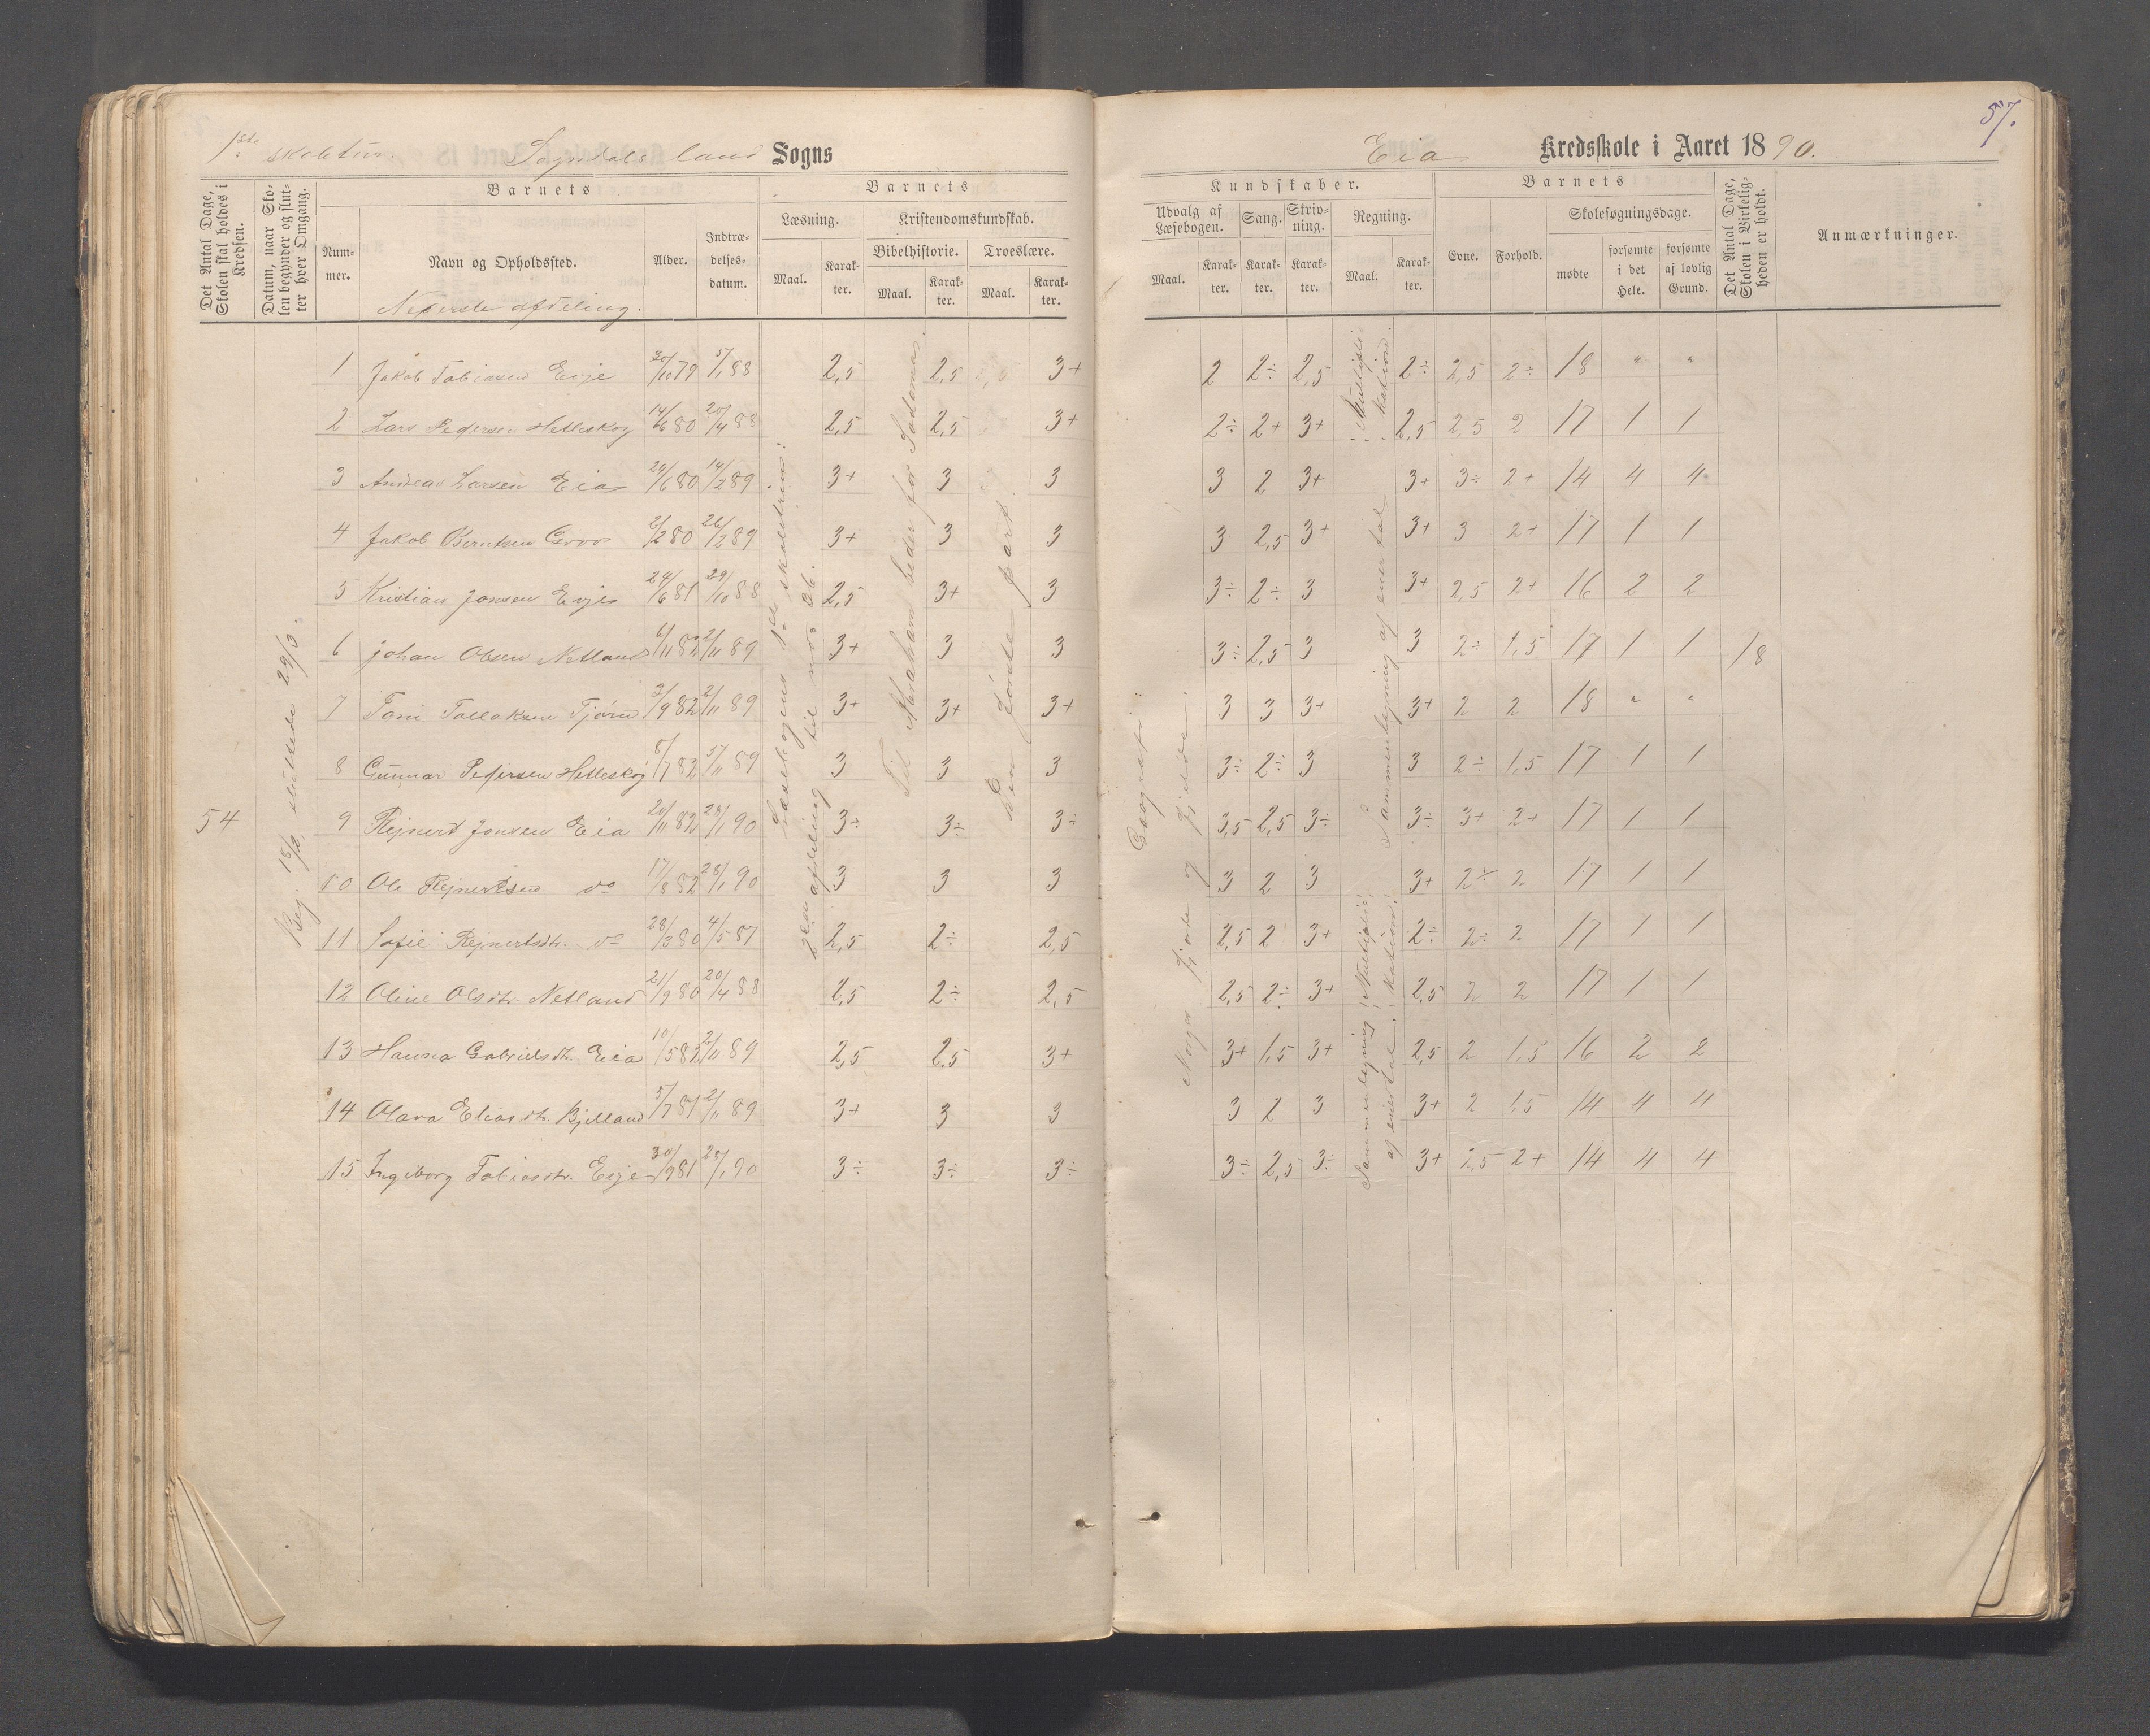 57.
1ste skoletur. Sogndals land Sogns
Eia Kredsskole i Aaret 1890.
Det Antal Dage, Skolen skal holdes i Kredsen.
Datum, naar Skolen begynder og slutter hver Omgang.
Barnets
Nummer.
Navn og Opholdssted.
Alder.
Indtrædelsesdatum.
Nederste afdeling.
Barnets
Læsning.
Kristendomskundskab.
Maal.
Karakter.
Bibelhistorie.
Troeslære.
Maal.
Karakter.
Maal.
Karakter.
Kundskaber.
Udvalg af Læsebogen.
Sang.
Skrivning.
Regning.
Maal.
Karakter.
Karakter.
Karakter.
Maal.
Karakter.
Barnets
Evne.
Forhold.
Skolesøgningsdage.
mødte
forsømte i det Hele.
forsømte af lovlig Grund.
Det Antal Dage, Skolen i Virkeligheden er holdt.
Anmærkninger.
1 Jakob Tobiassen Eije 20/10 79 5/1 88 2,5 2,5 3+ 2 2÷ 2,5 2÷ 2,5 2÷ 18 " "
2 Lars Pedersen Hetleskog 14/6 80 20/4 88 2,5 2,5 3+ 2÷ 2+ 3+ 2,5 2,5 2 17 1 1
3 Andreas Larsen Eia 24/6 80 14/2 89 3+ 3 3 3 2 3+ 3+ 3÷ 2+ 14 4 4
4 Jakob Berntsen 2/2 80 26/2 89 3+ 3 3 3 2,5 3+ 3+ 3 2+ 17 1 1
5 Kristian Jonsen Eije 24/6 81 29/10 88 2,5 3+ 3 3÷ 2÷ 3 3+ 2,5 2+ 16 2 2
6 Johan Olsen Netland 6/11 82 2/11 89 3+ 3 3 3÷ 2,5 3 3 2÷ 1,5 17 1 1 18
7 Toni Tollaksen Tjørn 3/9 82 2/11 89 3+ 3+ 3+ 3 3 3+ 3+ 2 2 18 " "
8 Gunnar Pedersen Hetleskog 8/7 82 5/11 89 3 3 3 3÷ 2÷ 3 3 2÷ 1,5 17 1 1
54 9 Rejnert Jonsen Eia 20/11 82 28/1 90 3÷ 3÷ 3÷ 3,5 2,5 3÷ 3÷ 3+ 2+ 17 1 1
10 Ole Rejnertsen do 17/8 82 28/1 90 3 3 3 3 2 3 3+ 2÷ 2 17 1 1
11 Sofie Rejnertsdtr. do 28/3 80 4/5 87 2,5 2÷ 2,5 2,5 2 3+ 2÷ 2÷ 2 17 1 1
12 Oline Olsdtr. Netland 21/9 80 20/4 88 2,5 2÷ 2,5 2,5 2÷ 3+ 2,5 2 2 17 1 1
13 Hanna Gabrielsdt. Eia 10/5 82 2/11 89 2,5 2,5 3+ 3+ 1,5 3+ 2,5 2 1,5 16 2 2
14 Olava Eliasdtr. Bjelland 5/7 81 2/1 89 3+ 3 3 3 2 3 3+ 2 1,5 14 4 4
15 Ingeborg Tobiasdtr. Eije 30/9 81 28/1 90 3÷ 3÷ 3÷ 3÷ 2,5 3÷ 3+ 2,5 2+ 14 4 4
Beg. 18/2, sluttede 29/3.
Læsebogens 1ste skoletrin:
2den afdeling til no 36.
Til Abraham beder for Sodoma.
Den første part.
Geografi:
Norges fjorde og fjelde.
Sammenlægning af enertal
: Multiplikation.
Sammenlægning af enertal. : Multiplikation.